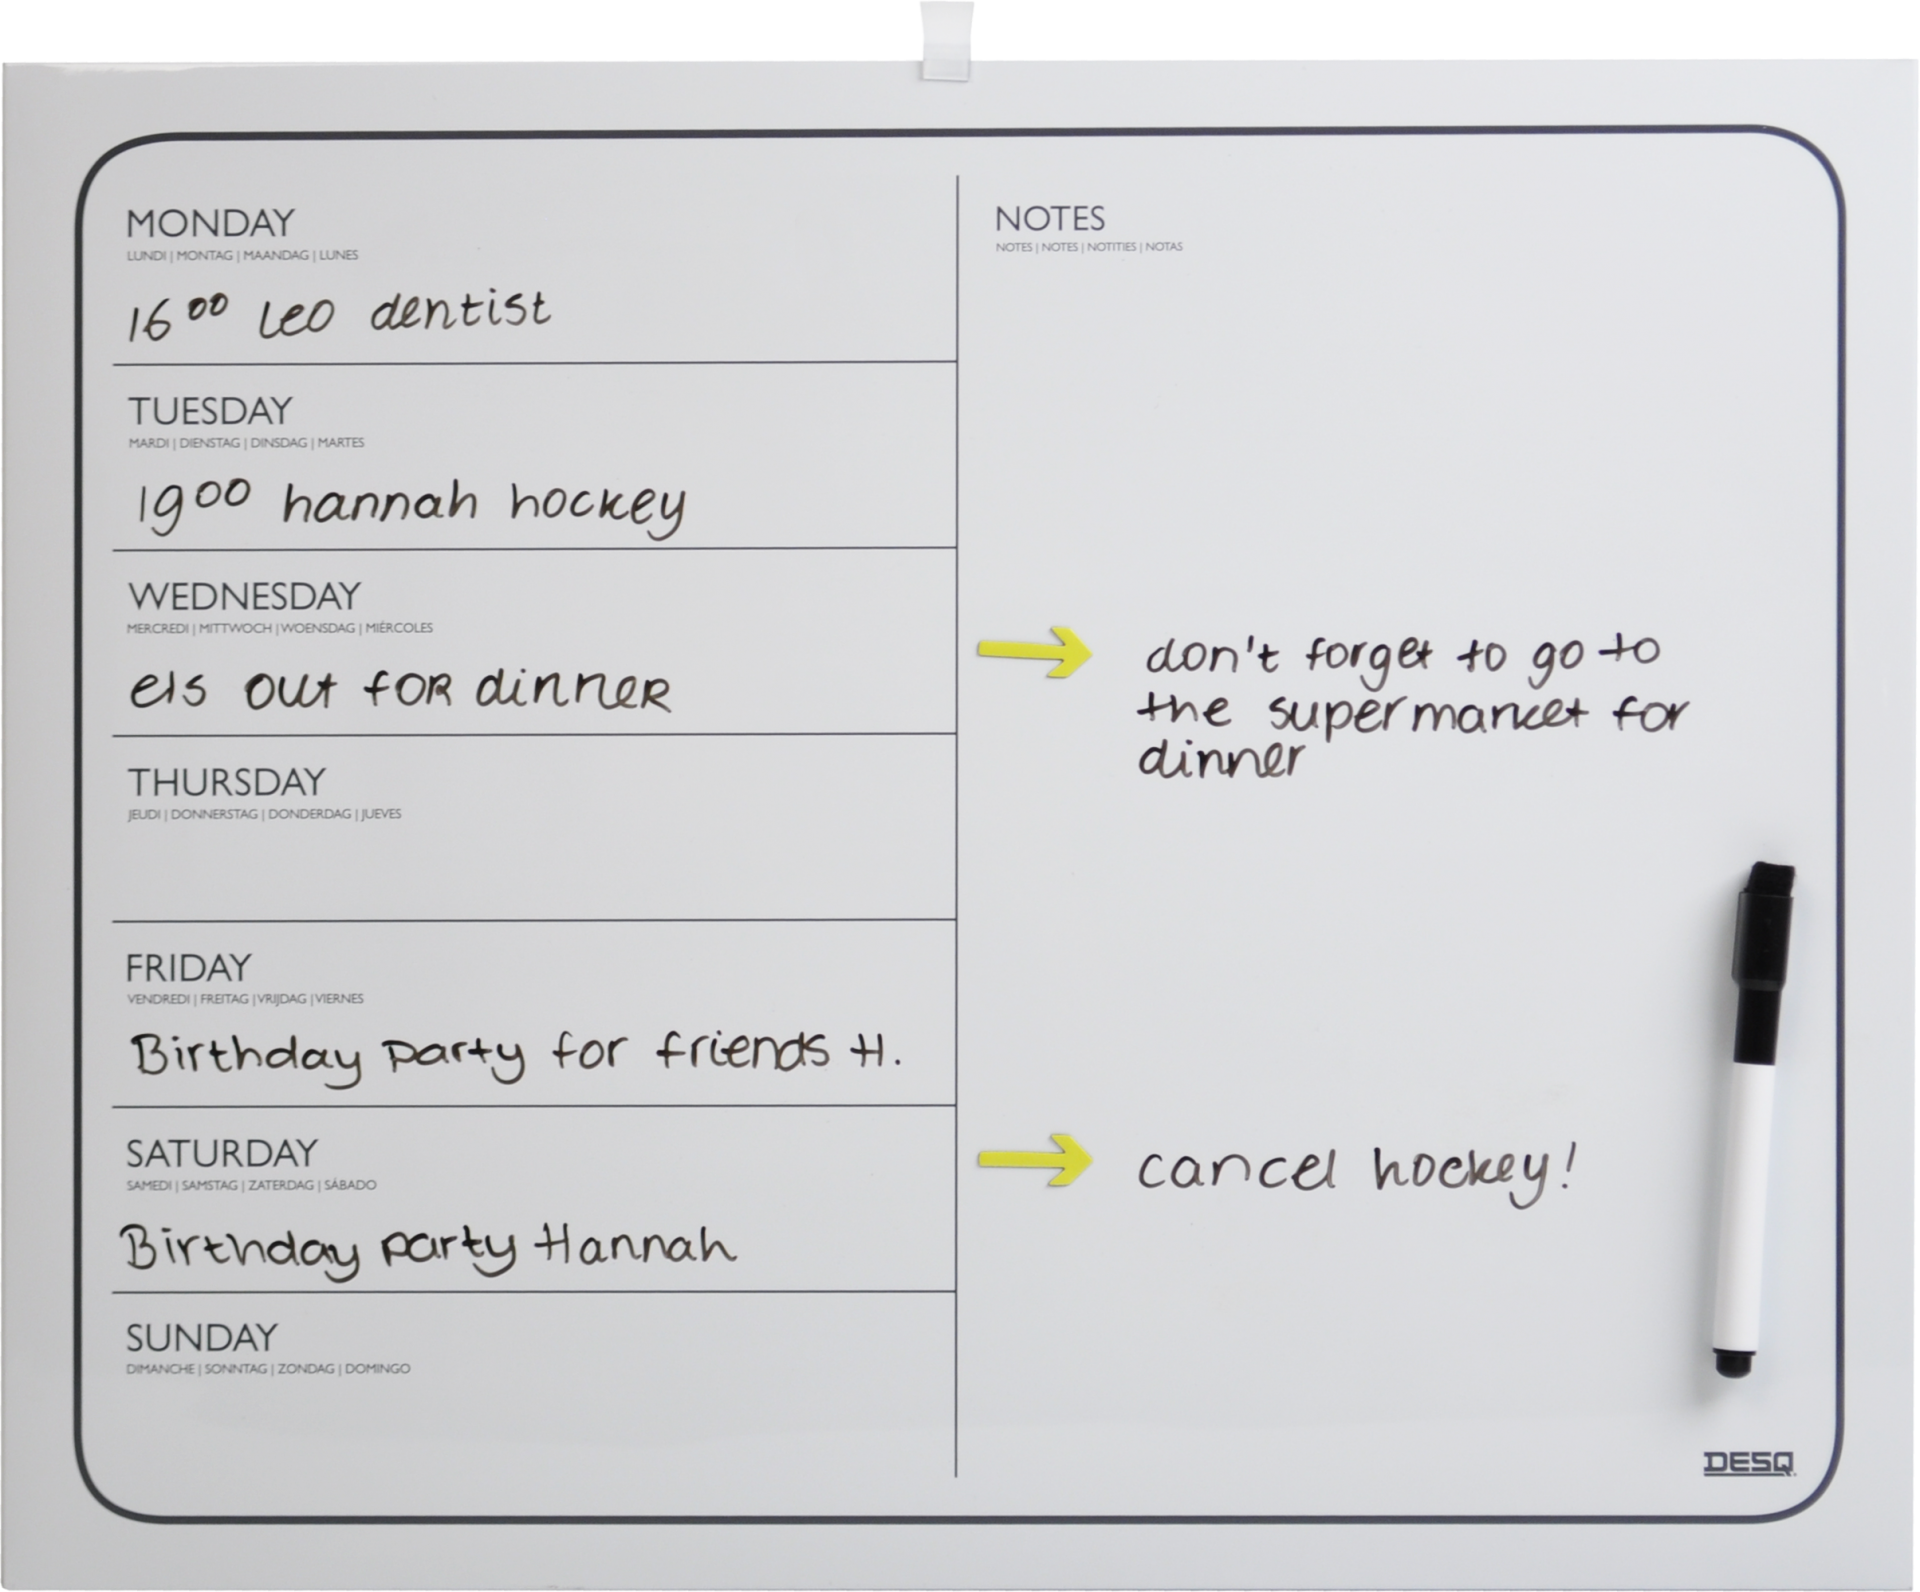 MONDAY
LUNDI | MONTAG | MAANDAG | LUNES
16⁰⁰ Leo dentist
TUESDAY
MARDI | DIENSTAG | DINSDAG | MARTES
19⁰⁰ hannah hockey
WEDNESDAY
MERCREDI | MITTWOCH | WOENSDAG | MIÉRCOLES
els out for dinner
THURSDAY
JEUDI | DONNERSTAG | DONDERDAG | JUEVES
FRIDAY
VENDREDI | FREITAG | VRIJDAG | VIERNES
Birthday party for friends H.
SATURDAY
SAMEDI | SAMSTAG | ZATERDAG | SÁBADO
Birthday party Hannah
SUNDAY
DIMANCHE | SONNTAG | ZONDAG | DOMINGO
NOTES
NOTES | NOTES | NOTITIES | NOTAS
don't forget to go to
the supermarket for
dinner
cancel hockey!
DESQ